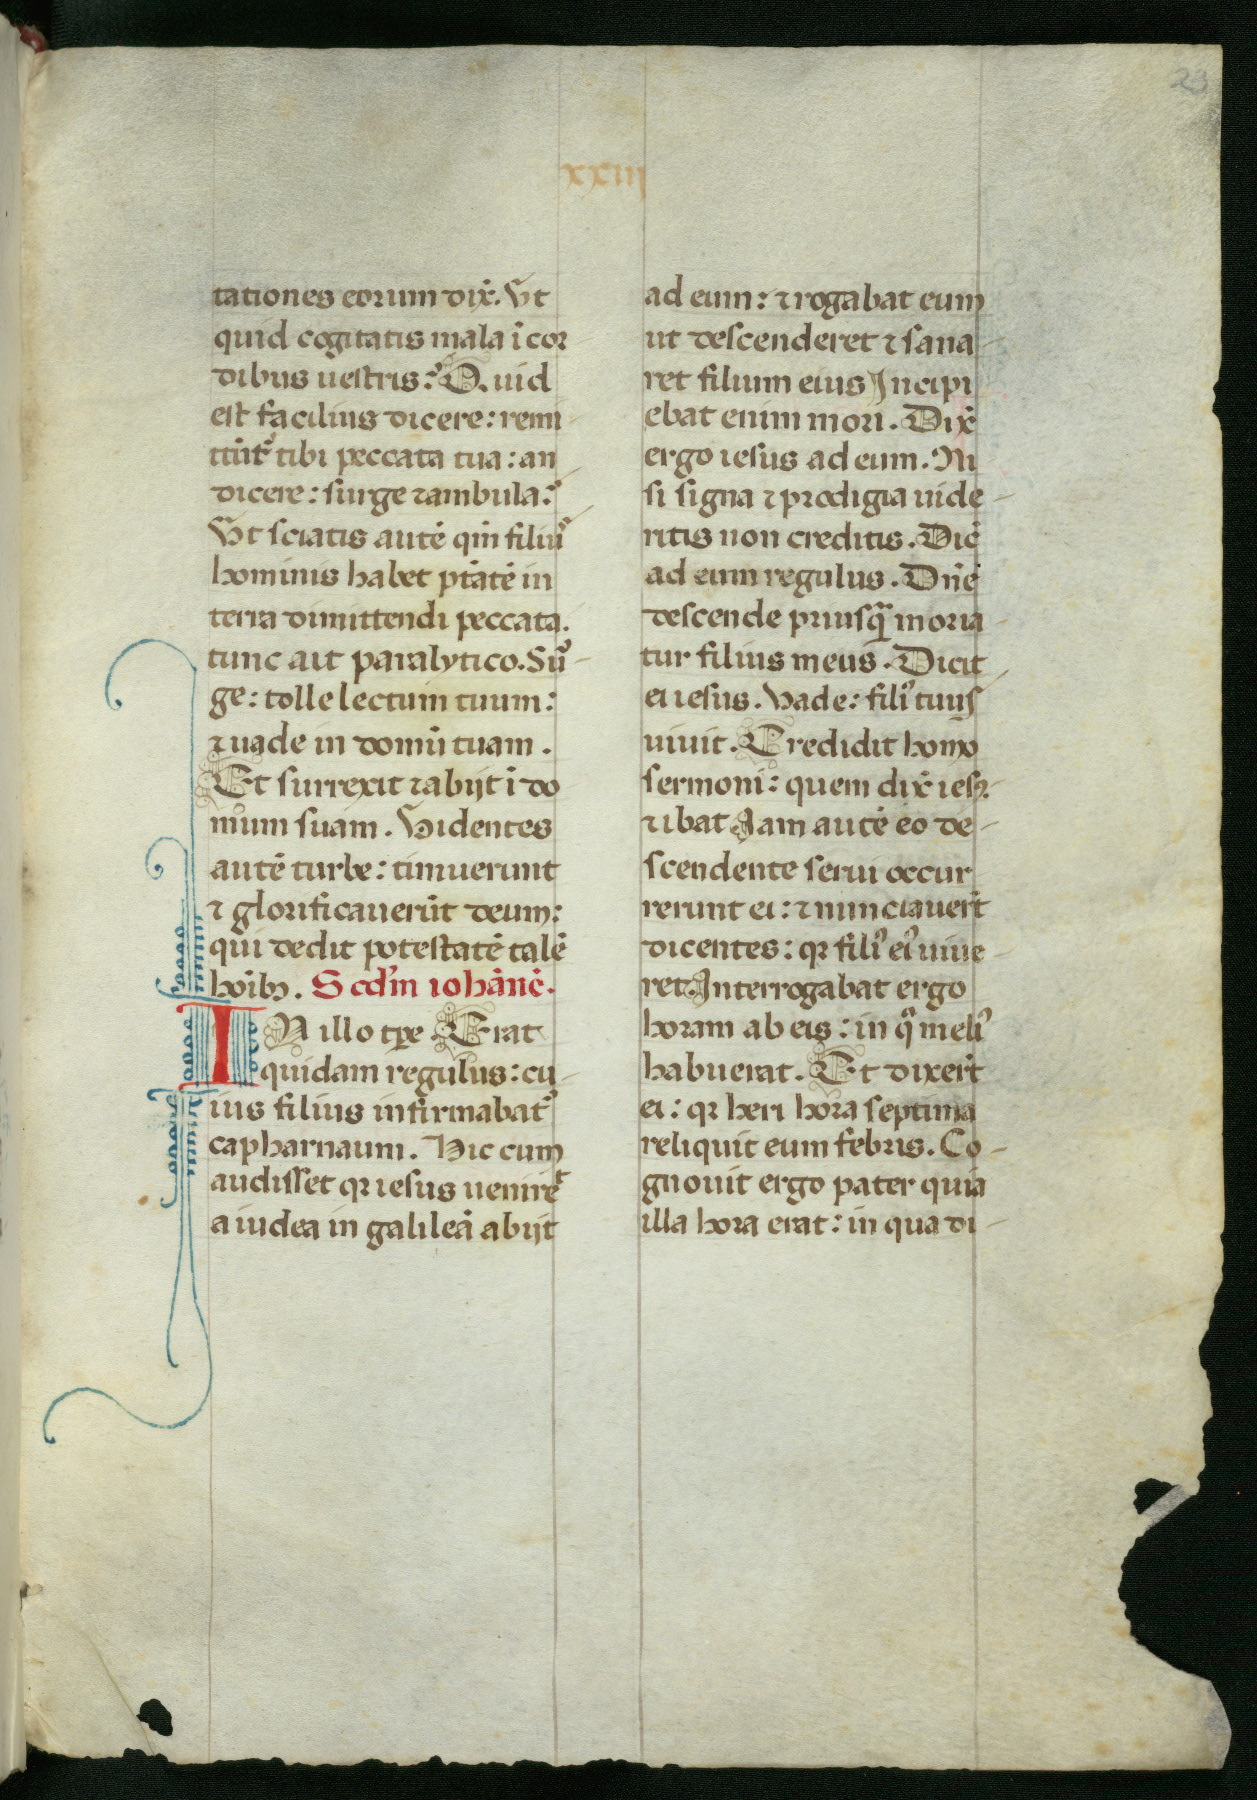 23
xxiij
tationes eorum dix̄. Vt
quid cogitatis mala ī cor
dibus uestris? Quid
est facilius dicere: remi
ttūt᷑ tibi peccata tua: an
dicere: surge ⁊ ambula?
Vt sciatis autē qm̄ filiū
hominis habet ptātē in
terra dimittendi peccata.
tunc ait paralytico. Su᷑
ge: tolle lectum tuum:
⁊ uade in domū tuam.
Et surrexit ⁊ abijt ī do
mum suam. Videntes
autē turbe: timuerunt
⁊ glorificauerūt deum:
qui dedit potestatē talē
hoībꝫ. Scdꝫm iohānē.
IN illo tꝑe. Erat
quidam regulus: cu
ius filius infirmabat᷑
capharnaum. Hic cum
audisset qꝛ iesus ueniret
a iudea in galileā abijt
ad eum: ⁊ rogabat eum
ut descenderet ⁊ sana
ret filium eius Incipi
ebat enim mori. Dix̄
ergo iesus ad eum. Ni
si signa ⁊ prodigia uide
ritis non creditis. Dic̄
ad eum regulus. Dn̄e
descende priusqᷓ moria
tur filius meus. Dicit
ei iesus. Vade: filiꝰ tuus
uiuit. Credidit homo
sermoni: quem dix̄ iesꝫ.
⁊ ibat Iam autē eo de
scendente serui occur
rerunt ei: ⁊ nunciauer̄t
dicentes: qꝛ filiꝰ eiꝰ uiue
ret. Interrogabat ergo
horam ab eis: in qᷓ meliꝰ
habuerat. Et dixer̄t
ei: qꝛ heri hora septima
reliquit eum febris. Co
gnouit ergo pater quia
illa hora erat: in qua di